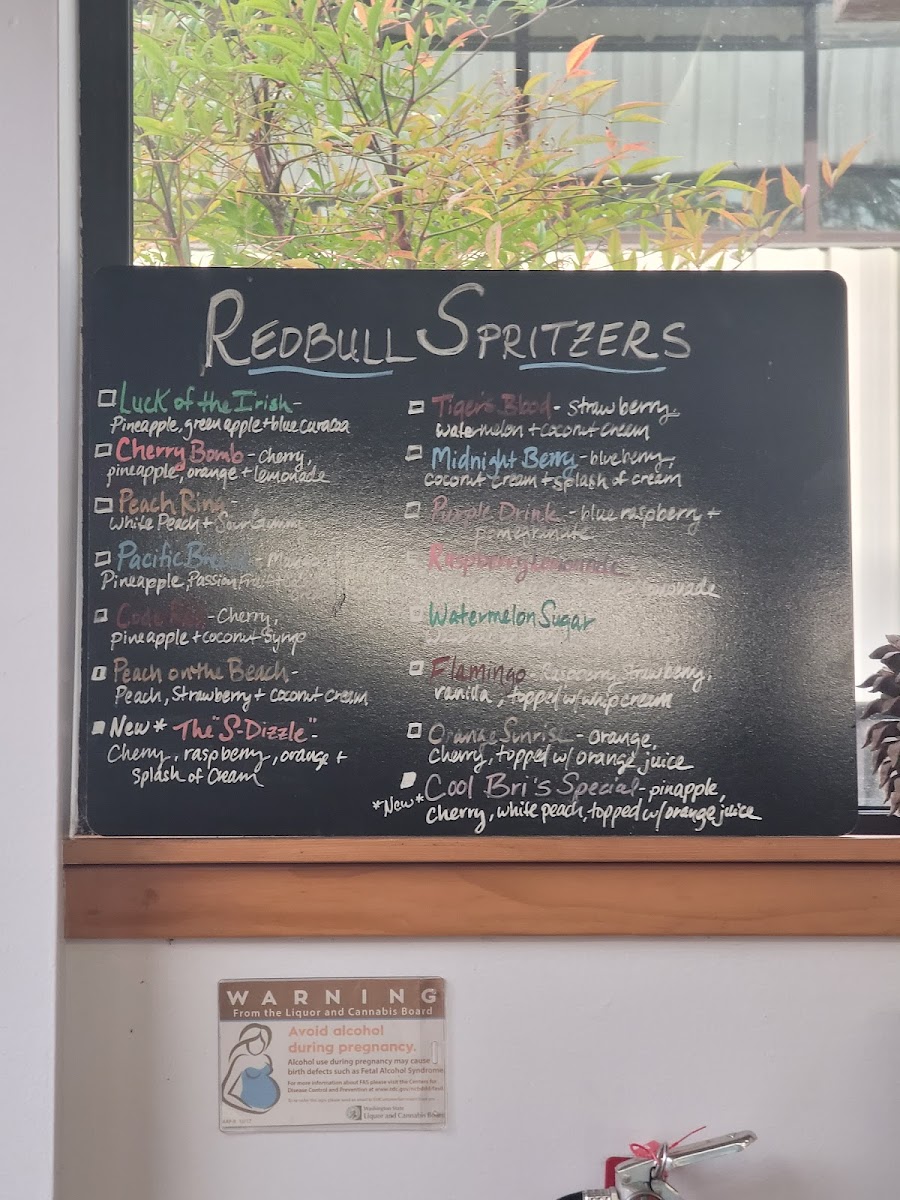 REDBULL SPRITZERS
Luck of the Irish-
Pineapple, green apple + blue curacao
Cherry Bomb - cherry,
pineapple, orange + lemonade
Peach Ring -
White Peach + Sour Gummy
Pacific -
Pineapple, Passion Fruit
Code - Cherry,
pineapple + coconut Syrup
Peach on the Beach -
Peach, Strawberry + coconut cream
New* The "S-Dizzle" -
Cherry, raspberry, orange +
splash of cream
Tiger's Blood - strawberry,
watermelon + coconut cream
Midnight Berry - blueberry,
coconut cream + splash of cream
Purple Drink - blue raspberry +
pomegranate
Raspberry Lemonade
Watermelon Sugar
Flamingo - Raspberry, strawberry,
vanilla, topped w/ whip cream
Orange Sunrise - orange,
cherry, topped w/ orange juice
Cool Bri's Special - pineapple,
*New* cherry, white peach, topped w/ orange juice
WARNING
From the Liquor and Cannabis Board
Avoid alcohol
during pregnancy.
Alcohol use during pregnancy may cause
birth defects such as Fetal Alcohol Syndrome
For more information about FAS please visit the Centers for
Disease Control and Prevention at
Washington State
Liquor and Cannabis Board